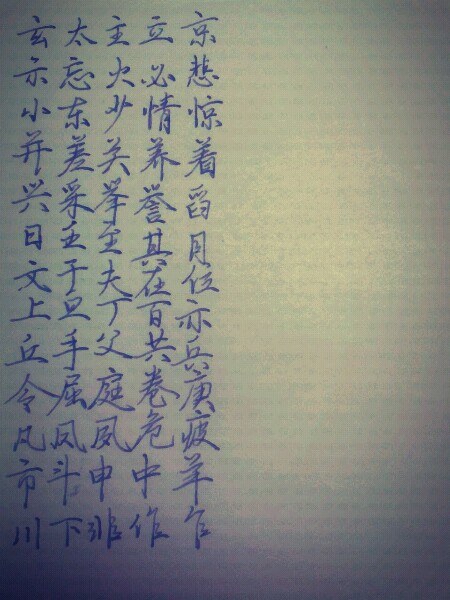 玄太主立京
示忘火必悲
小东少情惊
并差关养着
兴采举誉舀
日其月
文于夫在位
上旦丁百亦
丘手父共兵
令屈庭卷庚
凡凤夙危疲
市斗申中羊
川下非作乍